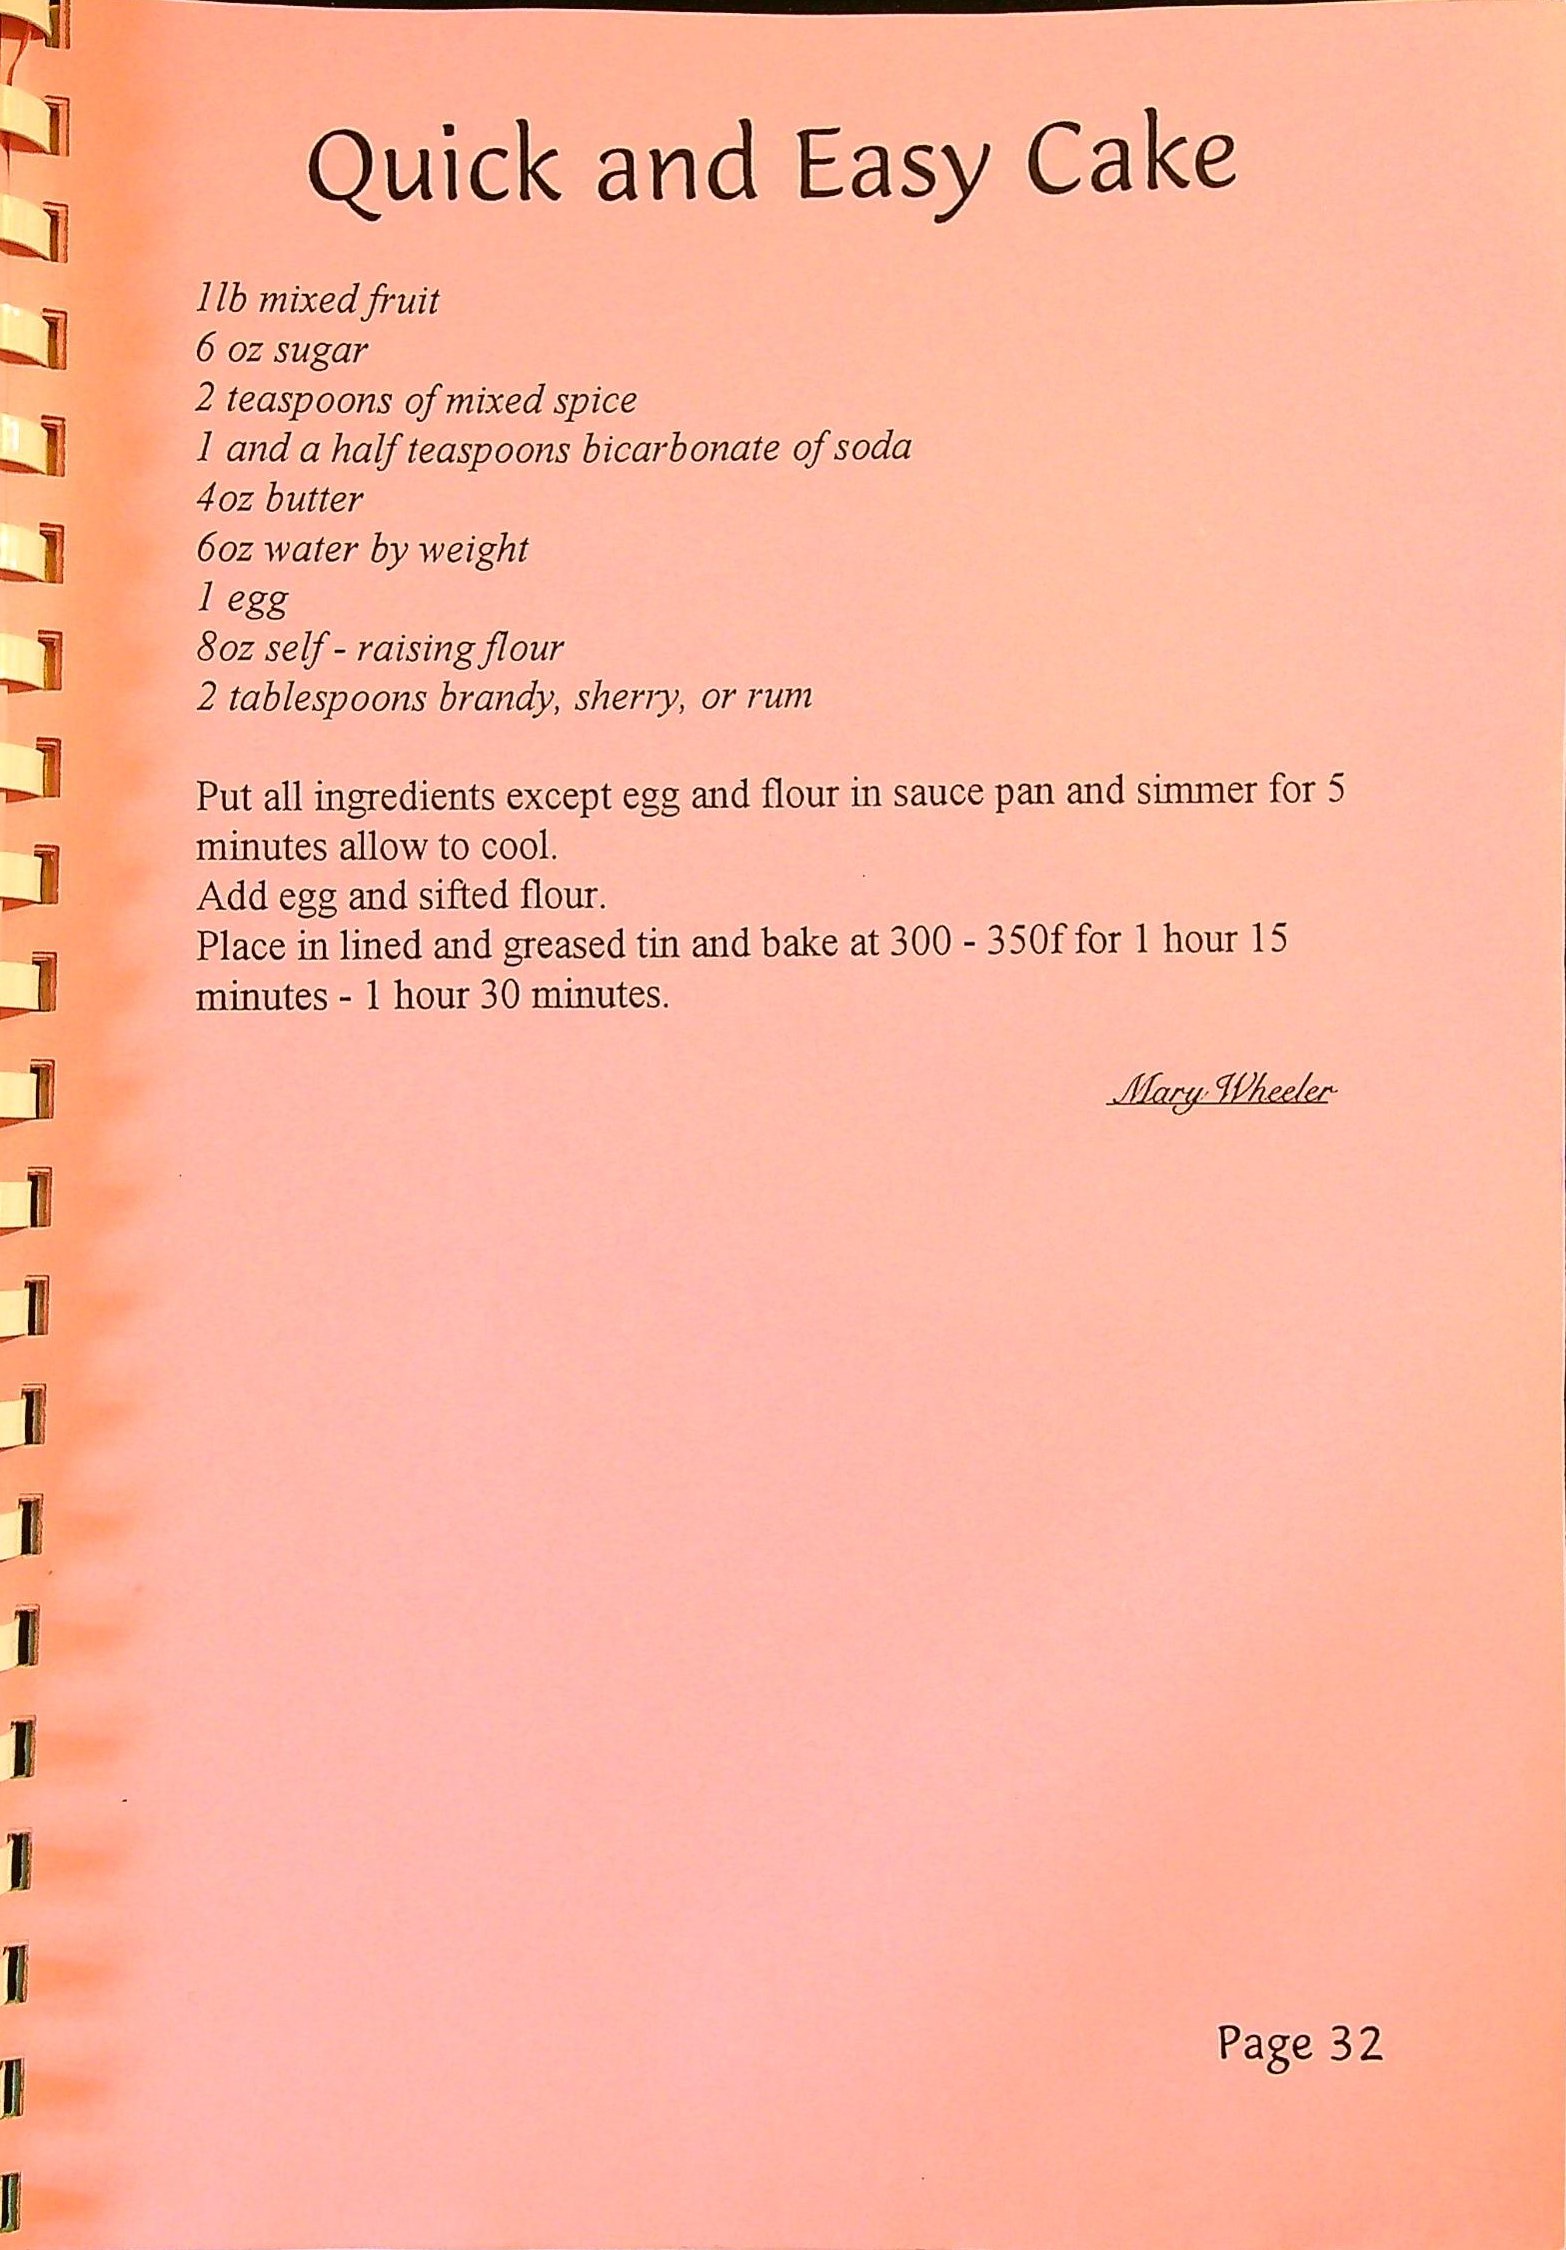 Quick and Easy Cake
1lb mixed fruit
6 oz sugar
2 teaspoons of mixed spice
1 and a half teaspoons bicarbonate of soda
4oz butter
6oz water by weight
1 egg
8oz self - raising flour
2 tablespoons brandy, sherry, or rum
Put all ingredients except egg and flour in sauce pan and simmer for 5
minutes allow to cool.
Add egg and sifted flour.
Place in lined and greased tin and bake at 300 - 350f for 1 hour 15
minutes - 1 hour 30 minutes.
Mary Wheeler
Page 32